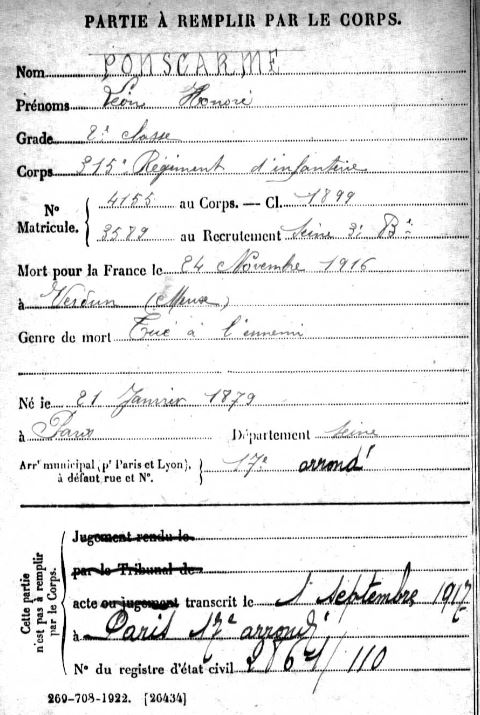 PARTIE À REMPLIR PAR LE CORPS.
Nom PONSCARME
Prénoms Léon Honoré
Grade 2e classe
Corps 315e Régiment d'infanterie
No Matricule. { 4155 au Corps. — Cl. 1899
3589 au Recrutement Seine 3e Bau
Mort pour la France le 24 Novembre 1916
à Verdun (Meuse)
Genre de mort Tué à l'ennemi
Né le 21 Janvier 1879
à Paris Département Seine
Arrt municipal (pr Paris et Lyon), à défaut rue et No. } 17e arrondt
Cette partie n'est pas à remplir par le Corps.
Jugement rendu le
par le Tribunal de
acte ou jugement transcrit le 1 septembre 1917
à Paris 17e arrondt
No du registre d'état civil 2864/110
269-708-1922. [26434]